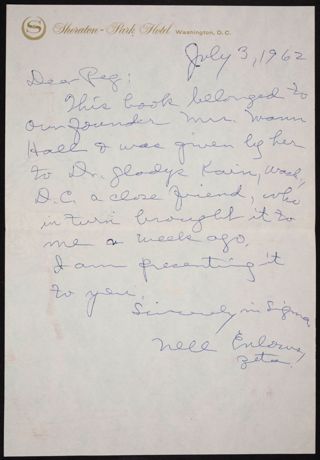 S
Sheraton-Park Hotel Washington, D.C.
July 3, 1962
Dear Peg:
This book belonged to
our founder Mrs. Wann
Hall & was given by her
to Dr. Gladys Kain, Wash,
D.C. a close friend, who
in turn brought it to
me a week ago.
I am presenting it
to you.
Sincerely in Sigma,
Nell
Zeta.